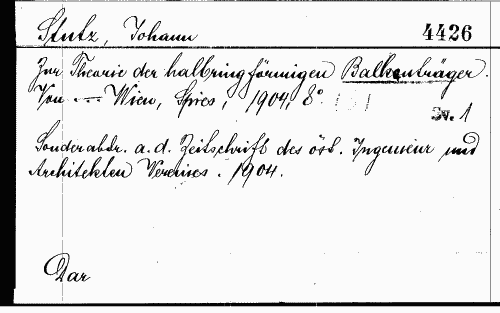 Stutz, Johann 4426
Zur Theorie der halbringförmigen Balkenträger.
Von --- Wien, Spies, 1904, 8°.
Sv. 1
Sonderabdr. a. d. Zeitschrift des öst. Ingenieur und
Architekten Vereines. 1904.
Dar